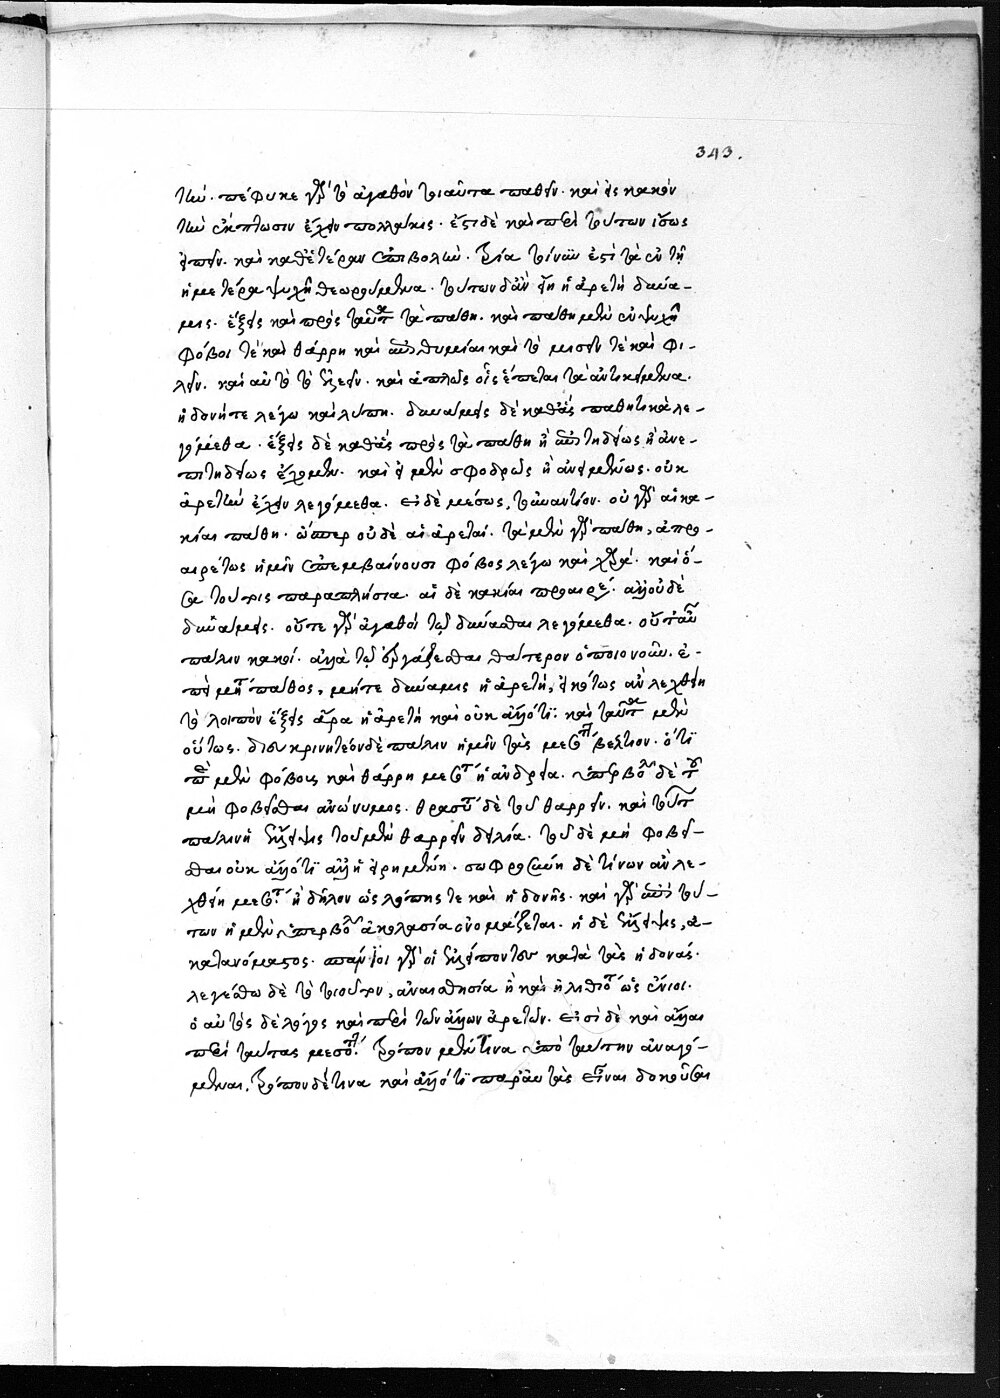 343.
τὴν. πέφυκε γὰρ τὸ ἀγαθὸν τοιαῦτα παθεῖν. καὶ εἰς κακὸν
τὴν ἔκπτωσιν ἔχειν πολλάκις. ἔστι δὲ καὶ περὶ τούτων ἴσως
εἰπεῖν. καὶ καθ' ἑτέραν ἐπιβολήν. τρία τοίνυν ἐστὶ τὰ ἐν τῇ
ἡμετέρᾳ ψυχῇ θεωρούμενα. τούτων δ' ἂν εἴη ἡ ἀρετὴ δυνά-
μεις. ἕξεις καὶ πρὸς ταῦτα τὰ πάθη. καὶ πάθη μὲν ἐν ψυχῇ
φόβοι τὲ καὶ θάρρη καὶ ἐπιθυμίαι καὶ τὸ μισεῖν τὲ καὶ φι-
λεῖν. καὶ αὐτὸ τὸ ἐλεεῖν. καὶ ἁπλῶς οἷς ἕπεται τὰ ἀντικείμενα.
ἡδονήτε λέγω καὶ λύπη. δυνάμεις δὲ καθ' ἃς παθητικὰ λε-
γόμεθα. ἕξεις δὲ καθ' ἃς πρὸς τὰ πάθη ἢ ἐπιτηδείως ἢ ἀνε-
πιτηδείως ἔχομεν. καὶ εἰ μὲν σφοδρῶς ἢ ἀνειμένως. οὐκ
ἀρετὴν ἔχειν λεγόμεθα. εἰ δὲ μέσως, τοὐναντίον. οὐ γὰρ αἱ κα-
κίαι πάθη. ὥσπερ οὐδὲ αἱ ἀρεταί. τὰ μὲν γὰρ πάθη, ἀπρο-
αιρέτως ἡμῖν ἐπεμβαίνουσι φόβος λέγω καὶ χαρά. καὶ ὅ-
σα τούτοις παραπλήσια. αἱ δὲ κακίαι προαιρέ. ἀλλ' οὐδὲ
δυνάμεις. οὔτε γὰρ ἀγαθοὶ τῷ δύνασθαι λεγόμεθα. οὔτ' αὖ
πάλιν κακοί. ἀλλὰ τῷ ἐργάζεσθαι θάτερον ὁποιονοῦν. ἐ-
πεὶ μήτε πάθος, μήτε δύναμις ἡ ἀρετή, εἰκότως ἂν λεχθείη
τὸ λοιπὸν ἕξις ἄρα ἡ ἀρετὴ καὶ οὐκ ἄλλό τι. καὶ ταῦτα μὲν
οὕτως. διευκρινητέον δὲ πάλιν ἡμῖν τὰς μεσότητας βέλτιον. ὅτι
περὶ μὲν φόβους καὶ θάρρη μεσότης ἡ ἀνδρεία. ὑπερβολὴ δὲ τοῦ
μὴ φοβεῖσθαι ἀνώνυμος. θρασύτης δὲ τοῦ θαρρεῖν. καὶ τούτου
πάλιν ἡ ἔλλειψις τοῦ μὲν θαρρεῖν δειλία. τοῦ δὲ μὴ φοβεῖ-
σθαι οὐκ ἄλλό τι ἀλλ' ἡ εἰρημένη. σωφροσύνη δὲ τίνων ἂν λε-
χθείη μεσότης ἢ δῆλον ὡς λύπης τε καὶ ἡδονῆς. καὶ γὰρ ἐπὶ τού-
των ἡ μὲν ὑπερβολὴ ἀκολασία ὀνομάζεται. ἡ δὲ ἔλλειψις, ἀ-
κατανόμαστος. σπάνιοι γὰρ οἱ ἐλλείποντες κατὰ τὰς ἡδονάς.
λεγέσθω δὲ τὸ τοιοῦτον, ἀναισθησία ἢ καὶ ἠλιθιότης ὡς ἔνιοι.
ὁ αὐτὸς δὲ λόγος καὶ περὶ τῶν ἄλλων ἀρετῶν. εἰσὶ δὲ καὶ ἄλλαι
περὶ ταύτας μεσότητες. τρόπον μέν τινα ὑπὸ ταύτην ἀναγό-
μεναι, τρόπον δέ τινα καὶ ἄλλό τι παρ' αὐτὰς εἶναι δοκοῦσαι